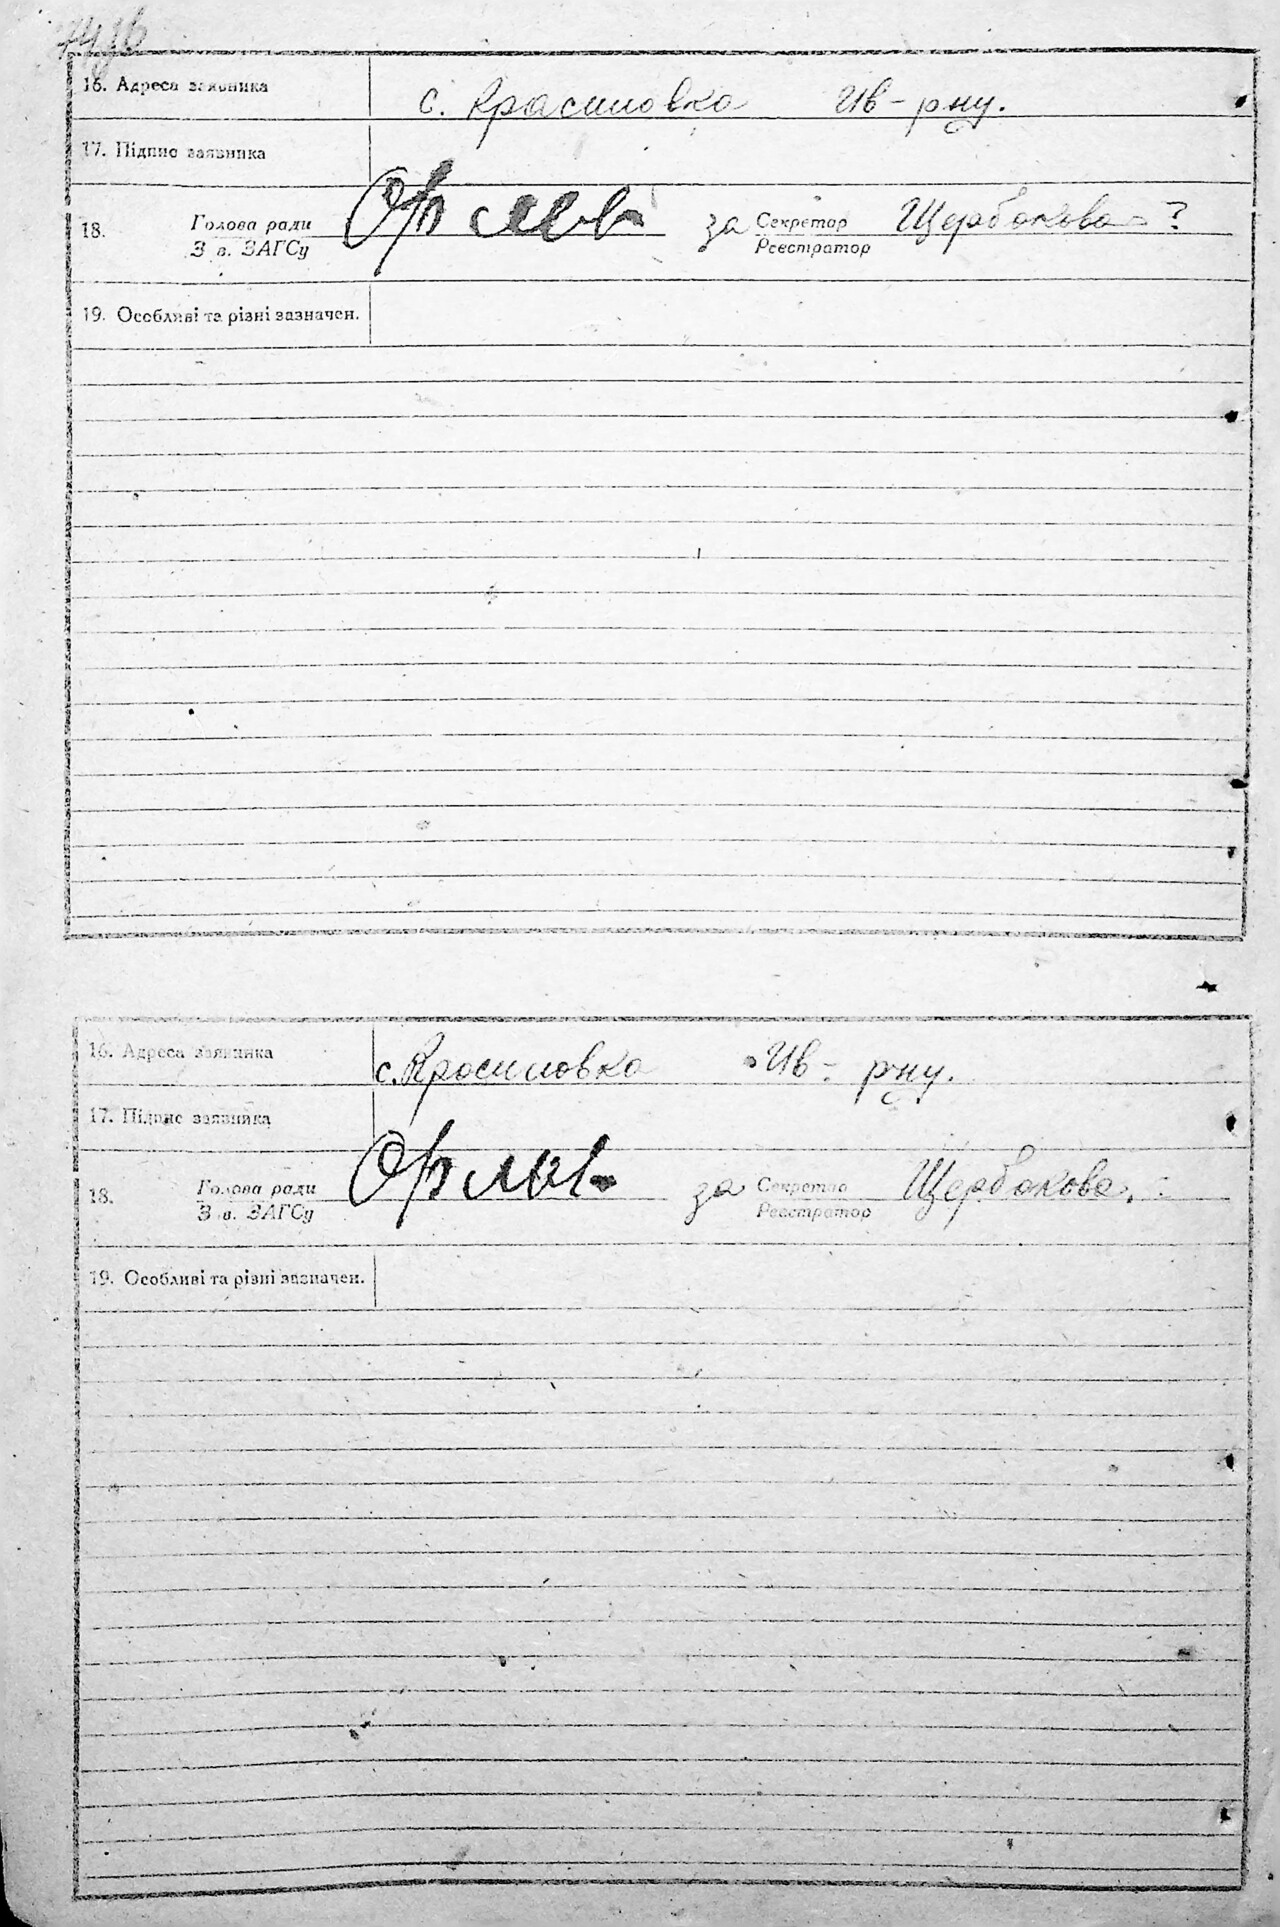 16. Адреса заявника с. Красиловка Ив-рну.
17. Підпис заявника
18. Голова ради за Секретар Щербакова
З в. ЗАГСу Реєстратор
19. Особливі та різні зазначен.
16. Адреса заявника с. Красиловка Ив-рну.
17. Підпис заявника
18. Голова ради за Секретар Щербакова.
З в. ЗАГСу Реєстратор
19. Особливі та різні зазначен.